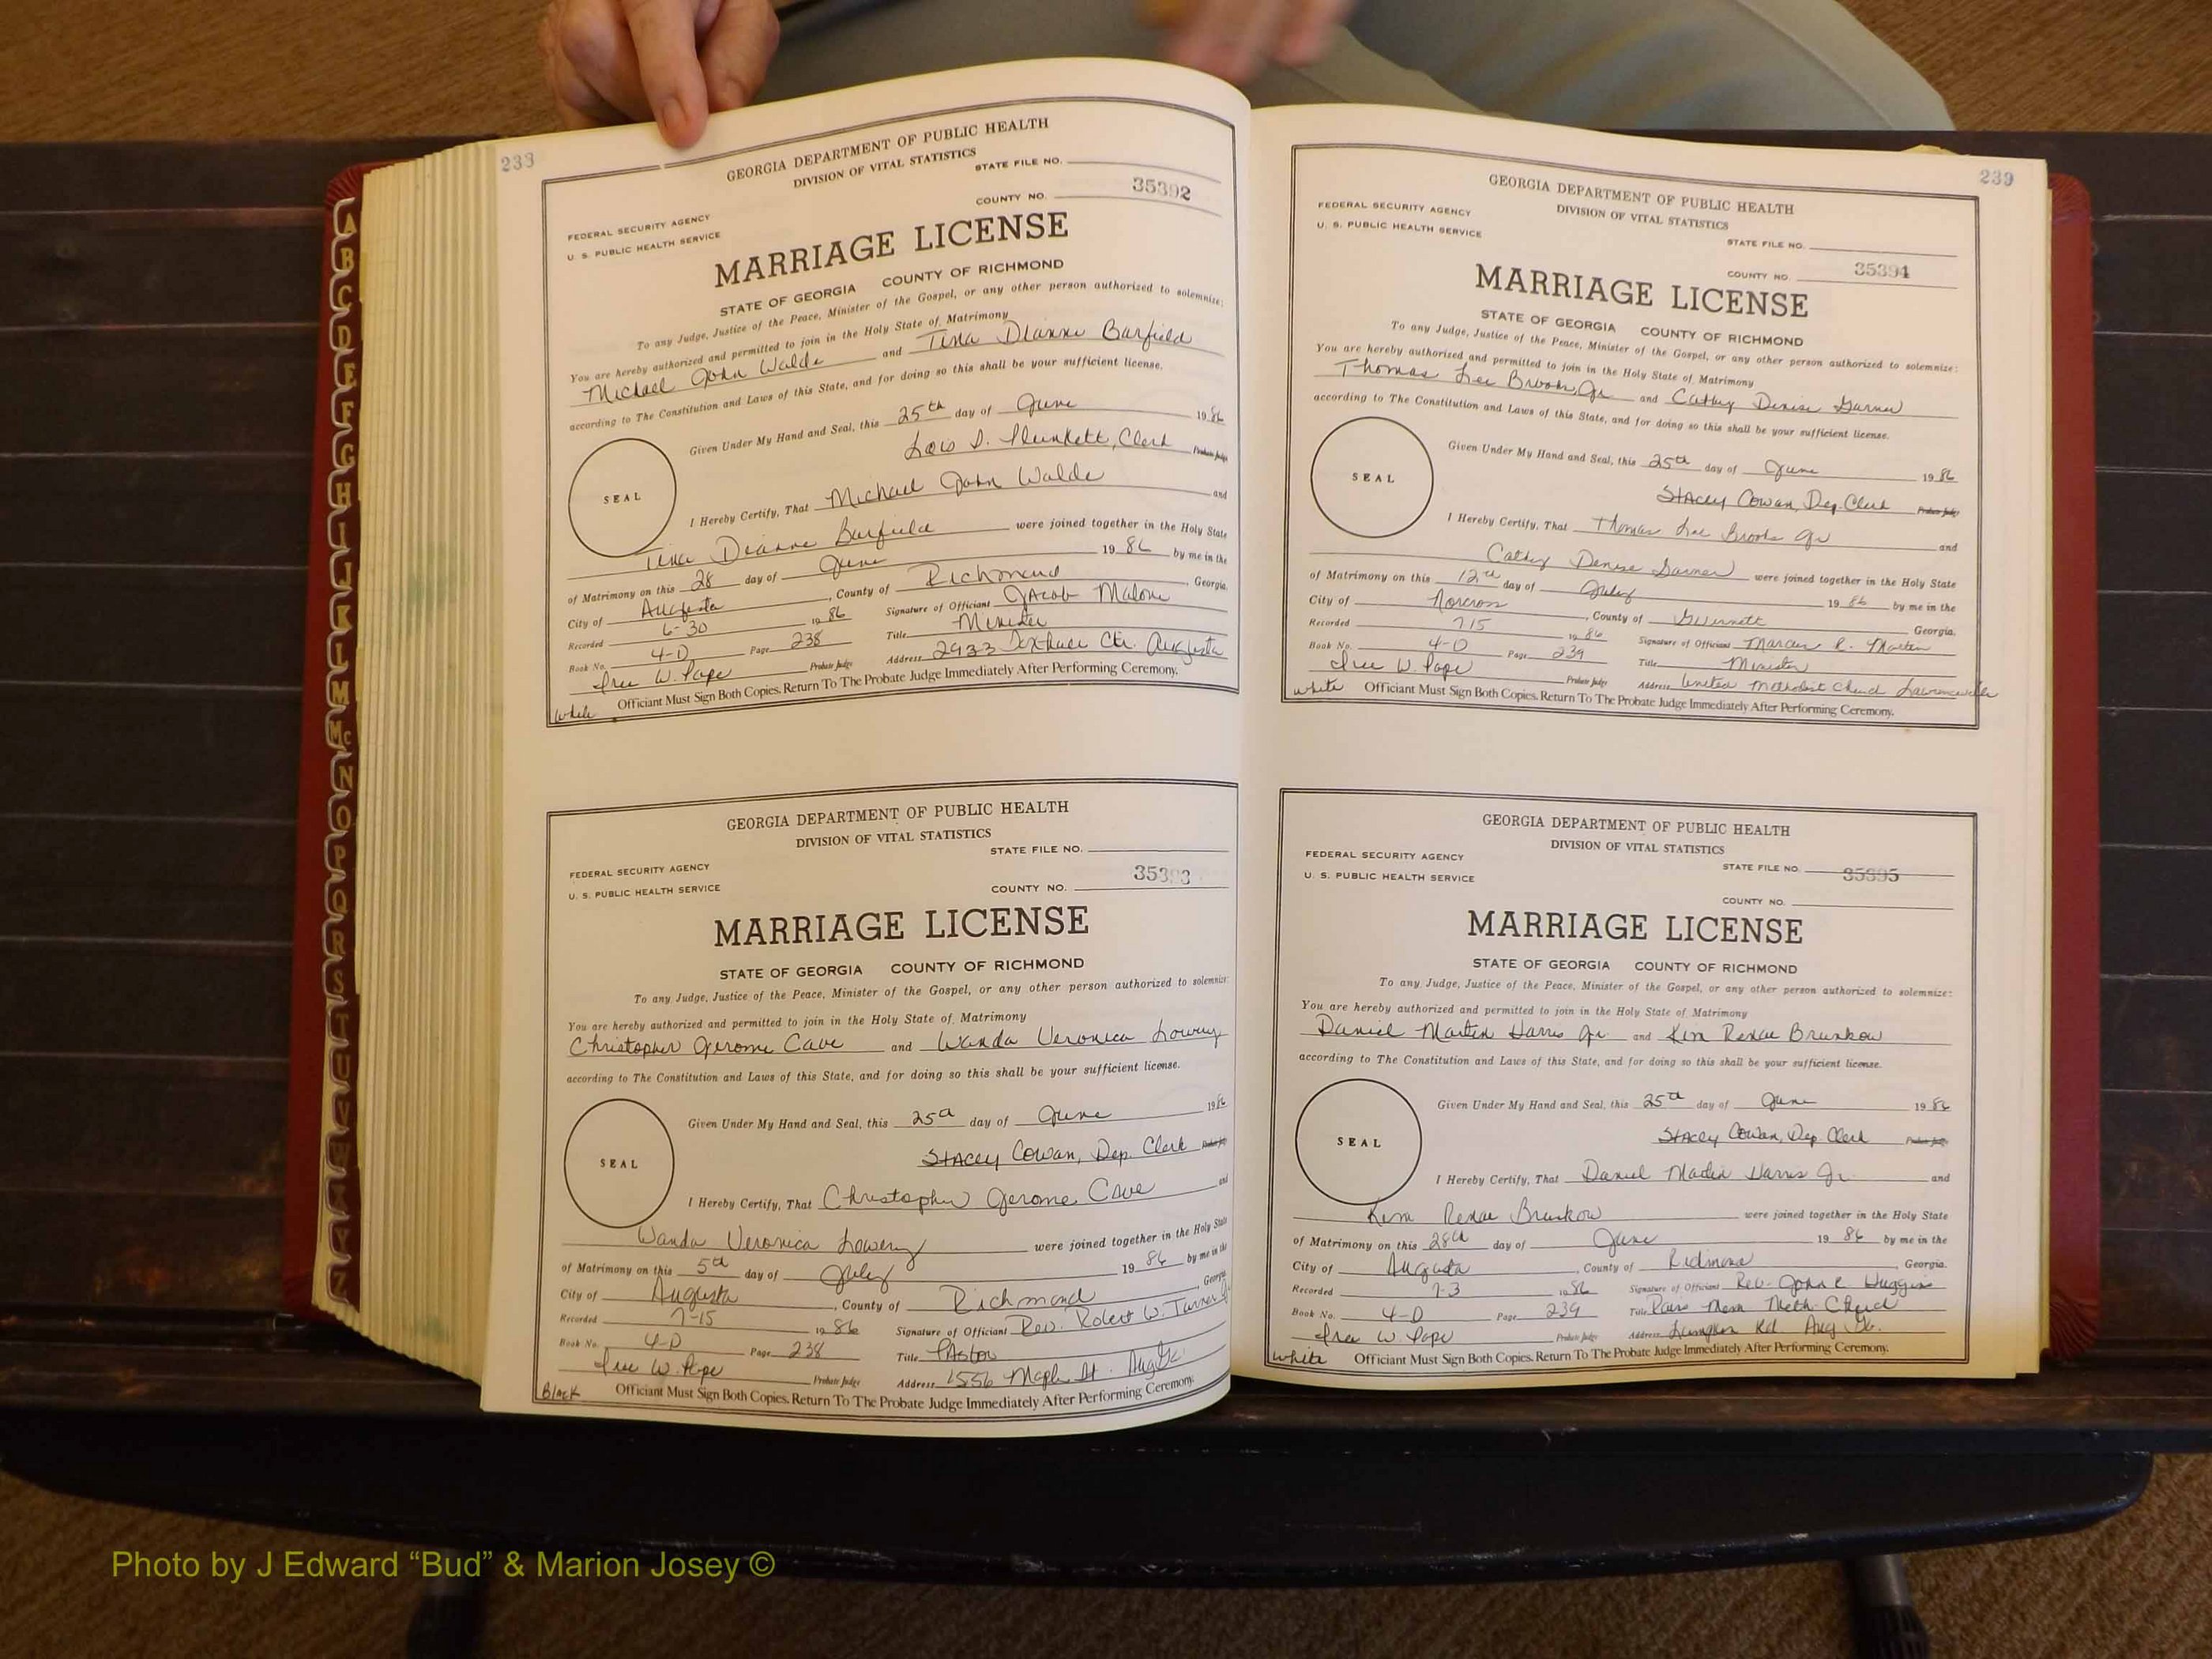 238
GEORGIA DEPARTMENT OF PUBLIC HEALTH
DIVISION OF VITAL STATISTICS
STATE FILE NO.
FEDERAL SECURITY AGENCY
U. S. PUBLIC HEALTH SERVICE
COUNTY NO. 35392
MARRIAGE LICENSE
STATE OF GEORGIA COUNTY OF RICHMOND
To any Judge, Justice of the Peace, Minister of the Gospel, or any other person authorized to solemnize:
You are hereby authorized and permitted to join in the Holy State of Matrimony
Michael John Walde and Tina Dianne Barfield
according to The Constitution and Laws of this State, and for doing so this shall be your sufficient license.
Given Under My Hand and Seal, this 25th day of June 1986
Lois S. Plunkett, Clerk Probate Judge
SEAL
I Hereby Certify, That Michael John Walde and
Tina Dianne Barfield were joined together in the Holy State
of Matrimony on this 28 day of June 1986 by me in the
City of Augusta, County of Richmond, Georgia.
Recorded 6-30 1986 Signature of Officiant Jacob Malone
Book No. 4-D Page 238 Title Minister
Iree W. Pope Probate Judge Address 2933 Ct. Augusta
White Officiant Must Sign Both Copies. Return To The Probate Judge Immediately After Performing Ceremony.
GEORGIA DEPARTMENT OF PUBLIC HEALTH
DIVISION OF VITAL STATISTICS
STATE FILE NO.
FEDERAL SECURITY AGENCY
U. S. PUBLIC HEALTH SERVICE
COUNTY NO. 35393
MARRIAGE LICENSE
STATE OF GEORGIA COUNTY OF RICHMOND
To any Judge, Justice of the Peace, Minister of the Gospel, or any other person authorized to solemnize:
You are hereby authorized and permitted to join in the Holy State of Matrimony
Christopher Jerome Cave and Wanda Veronica Lowery
according to The Constitution and Laws of this State, and for doing so this shall be your sufficient license.
Given Under My Hand and Seal, this 25th day of June 1986
Stacey Cowan, Dep. Clerk Probate Judge
SEAL
I Hereby Certify, That Christopher Jerome Cave and
Wanda Veronica Lowery were joined together in the Holy State
of Matrimony on this 5th day of July 1986 by me in the
City of Augusta, County of Richmond, Georgia
Recorded 7-15 1986 Signature of Officiant Rev. Robert W. Turner
Book No. 4-D Page 238 Title Pastor
Iree W. Pope Probate Judge Address 1556 Maple St. Aug Ga
Black Officiant Must Sign Both Copies. Return To The Probate Judge Immediately After Performing Ceremony.
239
GEORGIA DEPARTMENT OF PUBLIC HEALTH
DIVISION OF VITAL STATISTICS
FEDERAL SECURITY AGENCY
U. S. PUBLIC HEALTH SERVICE
STATE FILE NO.
COUNTY NO. 35394
MARRIAGE LICENSE
STATE OF GEORGIA COUNTY OF RICHMOND
To any Judge, Justice of the Peace, Minister of the Gospel, or any other person authorized to solemnize:
You are hereby authorized and permitted to join in the Holy State of Matrimony
Thomas Lee Brooks, Jr. and Cathy Denise Garner
according to The Constitution and Laws of this State, and for doing so this shall be your sufficient license.
Given Under My Hand and Seal, this 25th day of June 1986
Stacey Cowan, Dep. Clerk Probate Judge
SEAL
I Hereby Certify, That Thomas Lee Brooks Jr and
Cathy Denise Garner were joined together in the Holy State
of Matrimony on this 12th day of July 1986 by me in the
City of Norcross, County of Gwinnett Georgia.
Recorded 7 15 1986 Signature of Officiant R. Martin
Book No. 4-D Page 239 Title Minister
Iree W. Pope Probate Judge Address United Methodist Church Lawrenceville
white Officiant Must Sign Both Copies. Return To The Probate Judge Immediately After Performing Ceremony.
GEORGIA DEPARTMENT OF PUBLIC HEALTH
DIVISION OF VITAL STATISTICS
FEDERAL SECURITY AGENCY
U. S. PUBLIC HEALTH SERVICE
STATE FILE NO. 35395
COUNTY NO.
MARRIAGE LICENSE
STATE OF GEORGIA COUNTY OF RICHMOND
To any Judge, Justice of the Peace, Minister of the Gospel, or any other person authorized to solemnize:
You are hereby authorized and permitted to join in the Holy State of Matrimony
Daniel Martin Harris Jr and Kim Renae Brunkow
according to The Constitution and Laws of this State, and for doing so this shall be your sufficient license.
Given Under My Hand and Seal, this 25th day of June 1986
Stacey Cowan, Dep. Clerk Probate Judge
SEAL
I Hereby Certify, That Daniel Martin Harris Jr. and
Kim Renae Brunkow were joined together in the Holy State
of Matrimony on this 28th day of June 1986 by me in the
City of Augusta, County of Richmond, Georgia.
Recorded 7-3 1986 Signature of Officiant Rev. John R. Huggins
Book No. 4-D Page 239 Title Mem Meth. Church
Iree W. Pope Probate Judge Address Lumpkin Rd Aug Ga.
White Officiant Must Sign Both Copies. Return To The Probate Judge Immediately After Performing Ceremony.
A
B
C
D
E
F
G
H
I
J
K
L
M
Mc
N
O
P
Q
R
S
T
U
V
W
X
Y
Z
Photo by J Edward “Bud” & Marion Josey ©